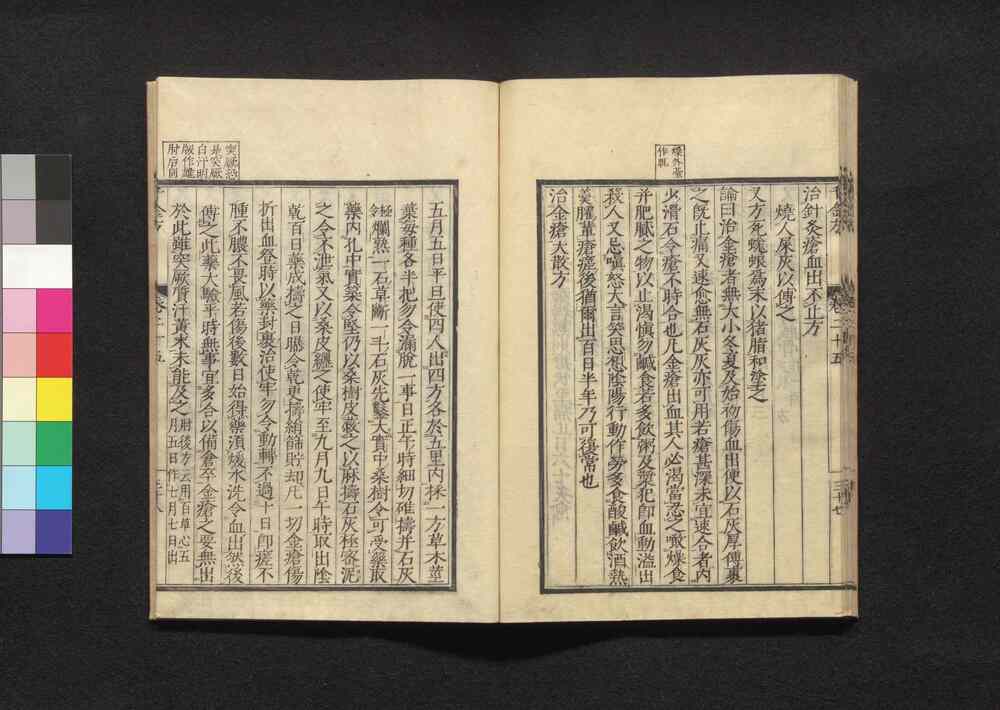 治針灸瘡血出不止方
燒人屎灰以傅之
又方死蜣蜋為末以猪脂和塗之
論曰治金瘡者無大小冬夏及始初傷血出便以石灰厚傅裹
之既止痛又速愈無石灰灰亦可用若瘡甚深未宜速合者内
少滑石令瘡不時合也凡金瘡出血其人必渴當忍之噉燥食
并肥膩之物以止渴慎勿鹹食若多飲粥及漿犯即血動溢出
殺人又忌嗔怒大言笑思想陰陽行動作勞多食酸鹹飲酒熱
羹臛輩瘡瘥後猶爾出百日半年乃可復常也
治金瘡大散方
燥外臺
作乾
卷二十五
三十七
五月五日平旦使四人出四方各於五里内採一方草木莖
葉每種各半把勿令漏脫一事日正午時細切碓擣并石灰
極令爛熟一石草斷一斗石灰先鑿大實中桑樹令可受藥取
藥内孔中實築令堅仍以桑樹皮蔽之以麻擣石灰極密泥
之令不泄氣又以桑皮纏之使牢至九月九日午時取出陰
乾百日藥成擣之日曝令乾更擣絹篩貯却凡一切金瘡傷
折出血登時以藥封裹治使牢勿令動轉不過十日即瘥不
腫不膿不畏風若傷後數日始得藥須煖水洗令血出然後
傅之此藥大驗平時無事宜多合以備倉卒金瘡之要無出
於此雖突厥質汗黃末未能及之肘後方云用百草心五
月五日作七月七日出
突厥恐
是突厥
白汗明
版作雄
肘后同